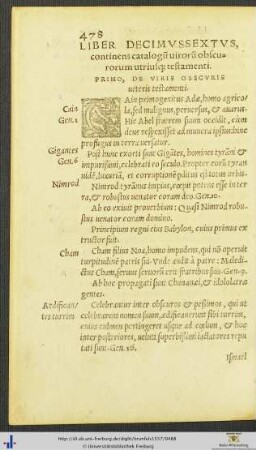 478
LIBER DECIMVSSEXTVS,
continens catalogũ uirorũ obscu-
rorum utriusq; testamenti.
PRIMO, DE VIRIS OBSCVRIS
ueteris testamenti.
Cain
Gen. 4
CAin primogenitus Adæ, homo agrico-
la, sed malignus, peruersus, & auarus.
Hic Abel fratrem suum occidit, eum
deus respexisset ad munera ipsius
profugus in terra uersatur.
Gigantes
Gen. 6
Post hunc exorti sunt Gigãtes, homines tyrãni &
impurissimi, celebrati eo seculo. Propter eorũ tyran
nidẽ, luxuriã, et corruptionẽ
Nimrod
Nimrod tyrãnus impius, cœpit potens esse inter
ra, & robustus uenator coram deo. Gen. 10.
Ab eo exiuit prouerbium: Quasi Nimrod robu-
stus uenator coram domino.
Principium regni eius Babylon, cuius primus ex
tructor fuit.
Cham
Cham filius Noæ, homo impudens, qui nõ operuit
turpitudinẽ patris sui. Vnde audit à patre: Maledi-
ctus Cham, seruus seruorũ erit fratribus suis. Gen. 9.
Ab hoc propagati sunt Chananæi, & idololatræ
gentes.
Aedifican-
tes turrim
Celebrantur inter obscuros & pessimos, qui ut
celebrarent nomen suum, ædificauerunt sibi turrim,
cuius culmen pertingeret usque ad cœlum, & hoc
inter posteriores, ueluti superbissimi iactatores repu
tati sunt. Gen. 11.
Ismael
http://dl.ub.uni-freiburg.de/diglit/brunfels1537/0488
© Universitätsbibliothek Freiburg